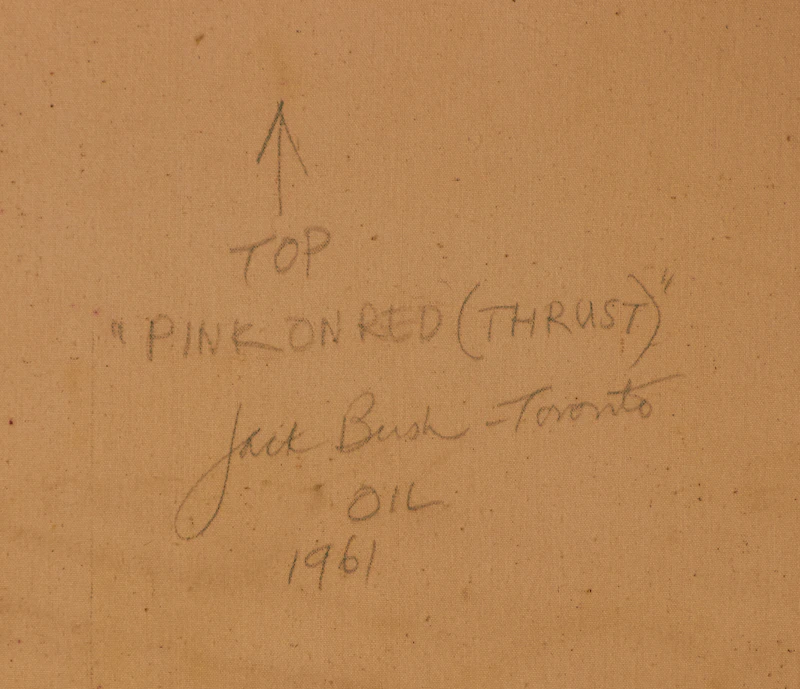 TOP
"PINK ON RED (THRUST)"
Jack Bush - Toronto
OIL
1961